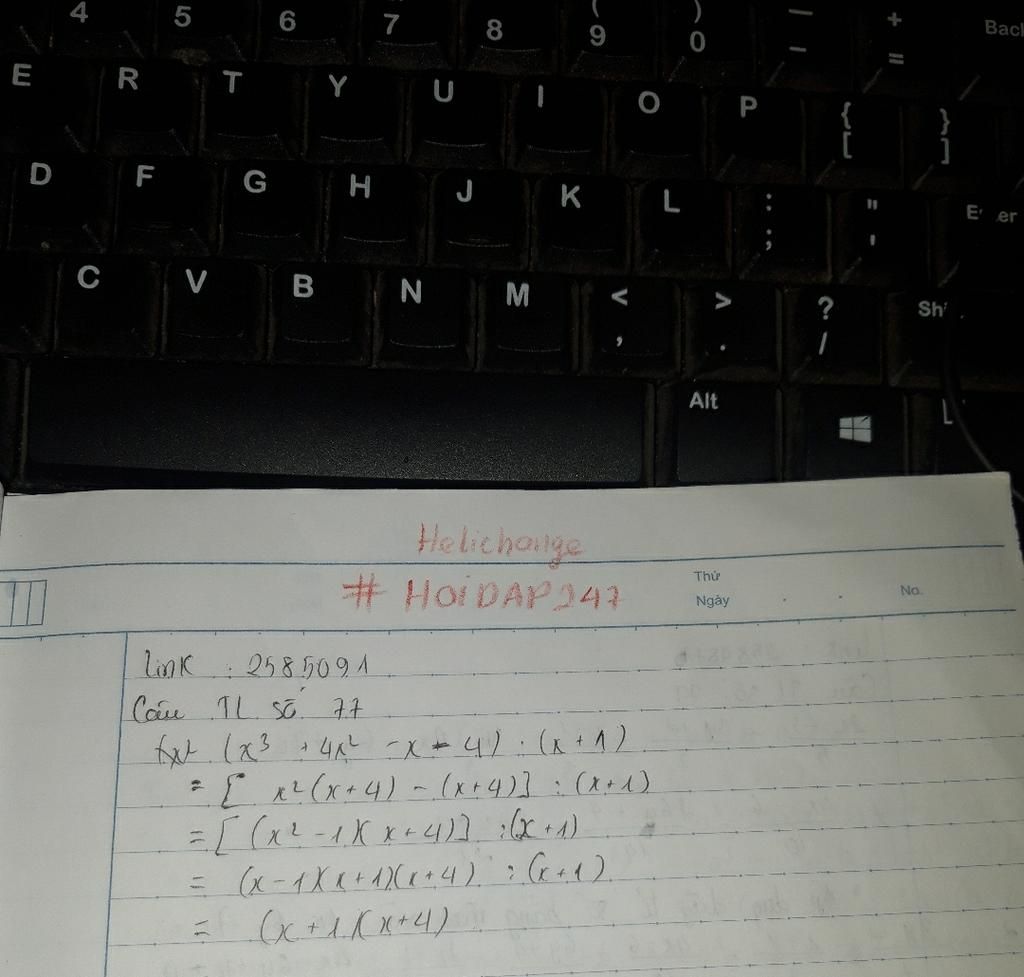 4 5 6 7 8 ( 9 ) 0 — - + = Back
E R T Y U I O P { [ } ]
D F G H J K L : ; " ' Enter
C V B N M < , > . ? / Shi
Alt L
Helichange
# HOIDAP247
Thứ
Ngày . . No.
link : 2585091
Câu TL số 77
(x³ + 4x² - x - 4) : (x + 1)
= [ x² (x + 4) - (x + 4)] : (x + 1)
= [ (x² - 1)(x + 4)] : (x + 1)
= (x - 1)(x + 1)(x + 4) : (x + 1)
= (x + 1)(x + 4)